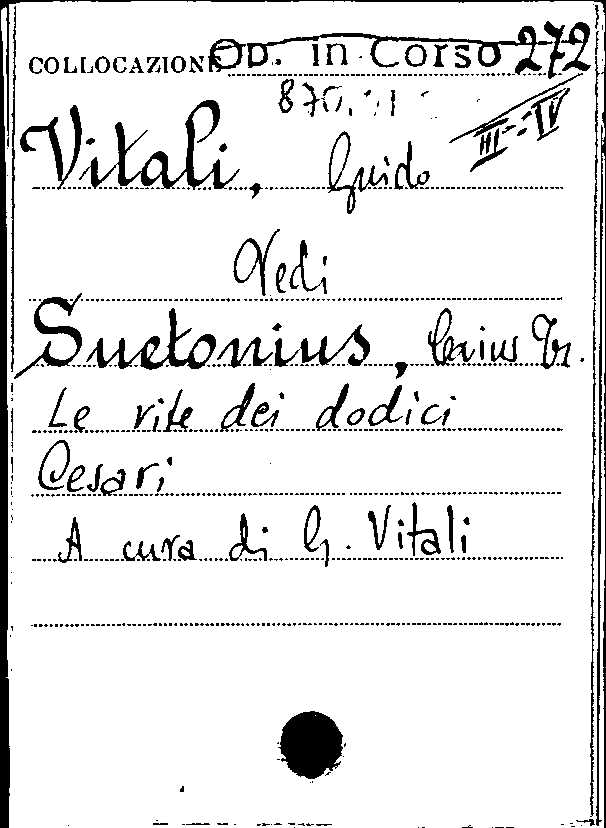 COLLOCAZIONE Op. in Corso 272
870.
III-IV
Vitali, Guido
Vedi
Suetonius, Tr.
Le vite dei dodici
Cesari
A cura di G. Vitali